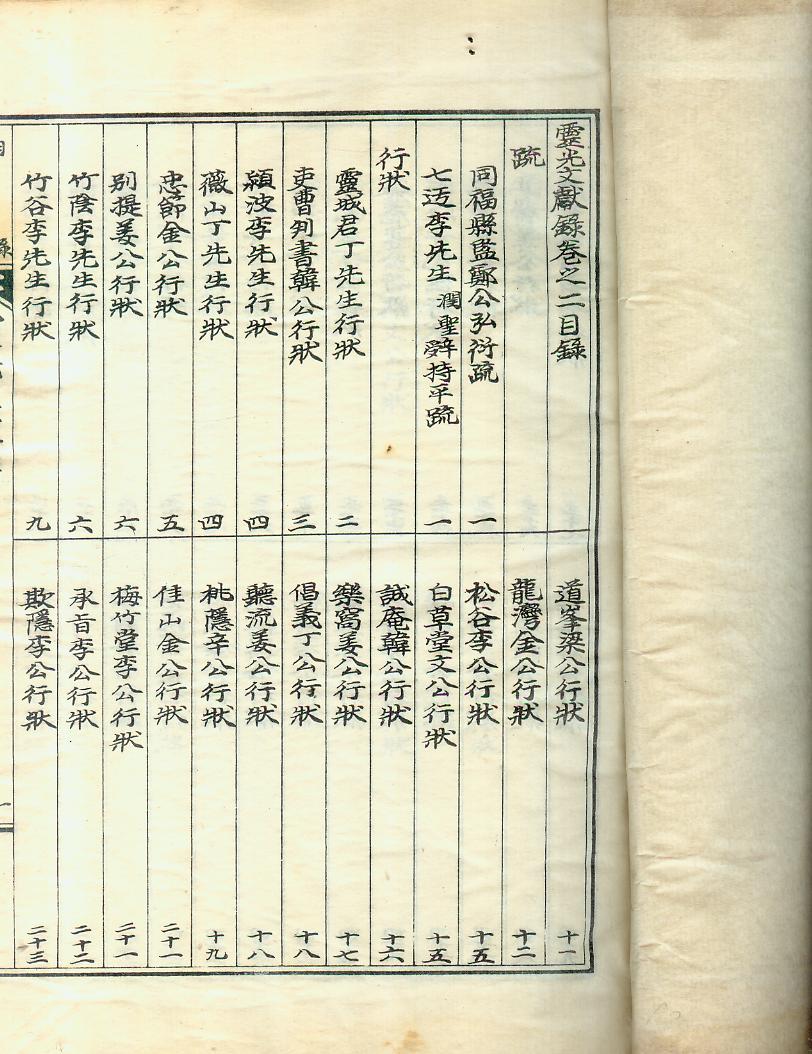 靈光文獻錄卷之二目錄
疏
同福縣監鄭公弘衍疏 一
七透李先生潤聖辭持平疏 一
行狀
靈城君丁先生行狀 二
吏曹判書韓公行狀 三
潁波李先生行狀 四
薇山丁先生行狀 四
忠節金公行狀 五
別提姜公行狀 六
竹陰李先生行狀 六
竹谷李先生行狀 九
道峯梁公行狀 十一
龍灣金公行狀 十二
松谷李公行狀 十五
白草堂文公行狀 十五
誠庵韓公行狀 十六
樂窩姜公行狀 十七
倡義丁公行狀 十八
聽流姜公行狀 十八
桃隱辛公行狀 十九
佳山金公行狀 二十一
梅竹堂李公行狀 二十一
承旨李公行狀 二十二
欺隱李公行狀 二十三